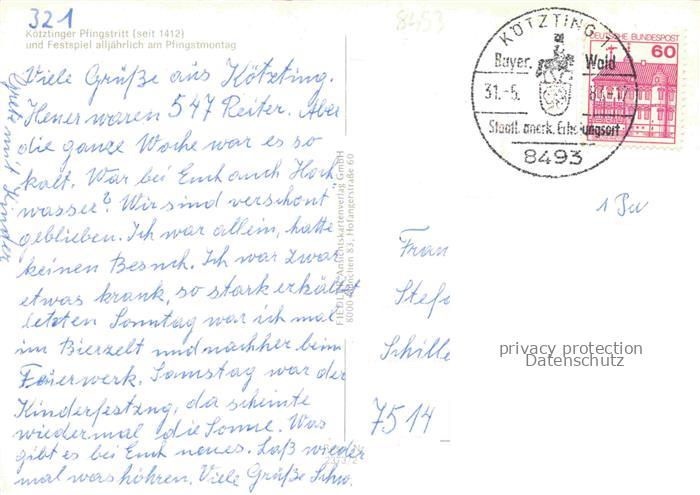 321
8493
Kötztinger Pfingstritt (seit 1412)
und Festspiel alljährlich am Pfingstmontag
Viele Grüße aus Kötzting.
Heuer waren 547 Reiter. Aber
die ganze Woche war es so
kalt. War bei Euch auch Hoch
wasser? Wir sind verschont
geblieben. Ich war allein, hatte
keinen Besuch. Ich war zwar
etwas krank, so stark erkältet
letzten Sonntag war ich mal
im Bierzelt und nachher beim
Feuerwerk. Samstag war der
Kinderfestzug, da scheinte
wiedermal die Sonne. Was
gibt es bei Euch neues. Laß wieder
mal was höhren. Viele Grüße
mit Kinder
FIEDLER-Ansichtskartenverlag GmbH
8000 München 83, Hofangerstraße 60
KÖTZTING 1
Bayer. Wald
31.-5.
Staatl. anerk. Erholungsort
8493
DEUTSCHE BUNDESPOST
60
Fran
Stef
Schille
7514
privacy protection
Datenschutz